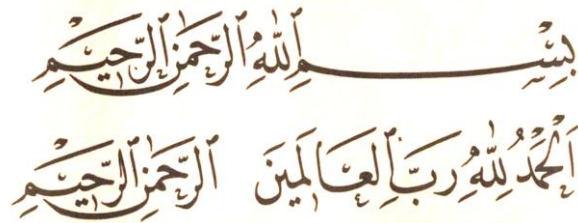 بِسْمِ ٱللَّهِ ٱلرَّحْمَٰنِ ٱلرَّحِيمِ
اَلْحَمْدُ لِلَّهِ رَبِّ ٱلْعَالَمِينَ ٱلرَّحْمَٰنِ ٱلرَّحِيمِ